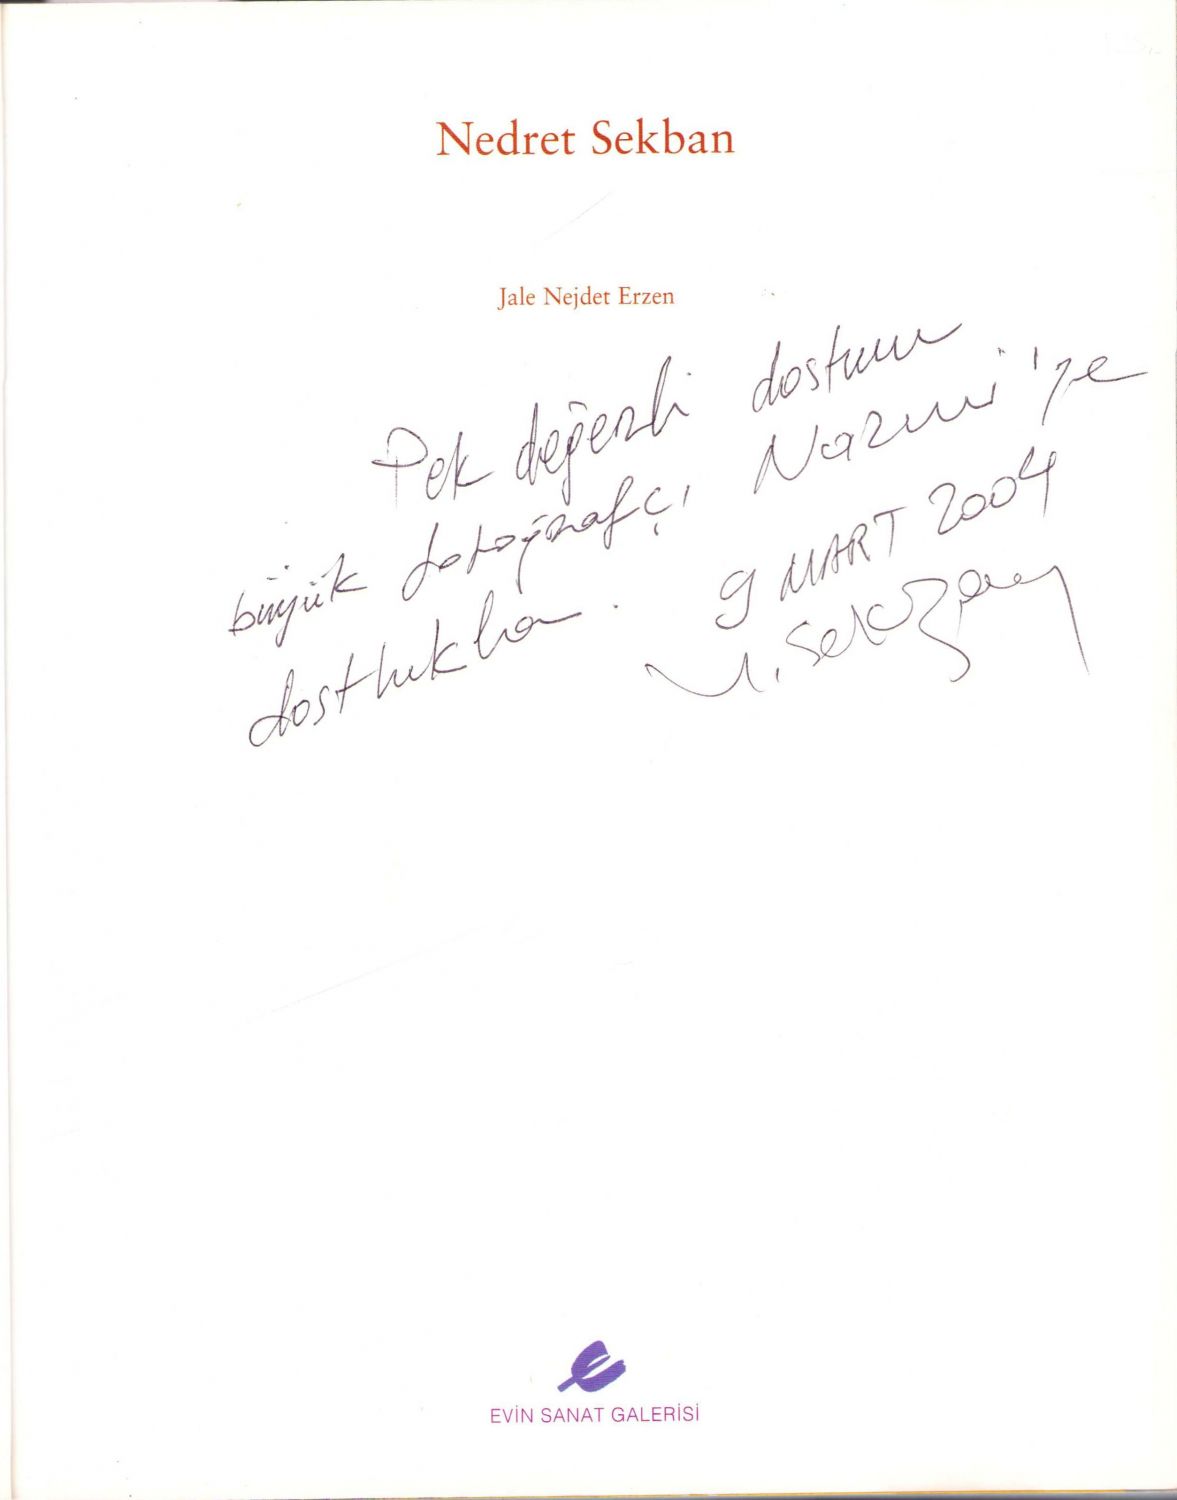 Nedret Sekban
Jale Nejdet Erzen
Pek değerli dostum
büyük fotoğrafçı Nazmi'ye
dostlukla.
9 MART 2004
N. Sekban
EVİN SANAT GALERİSİ